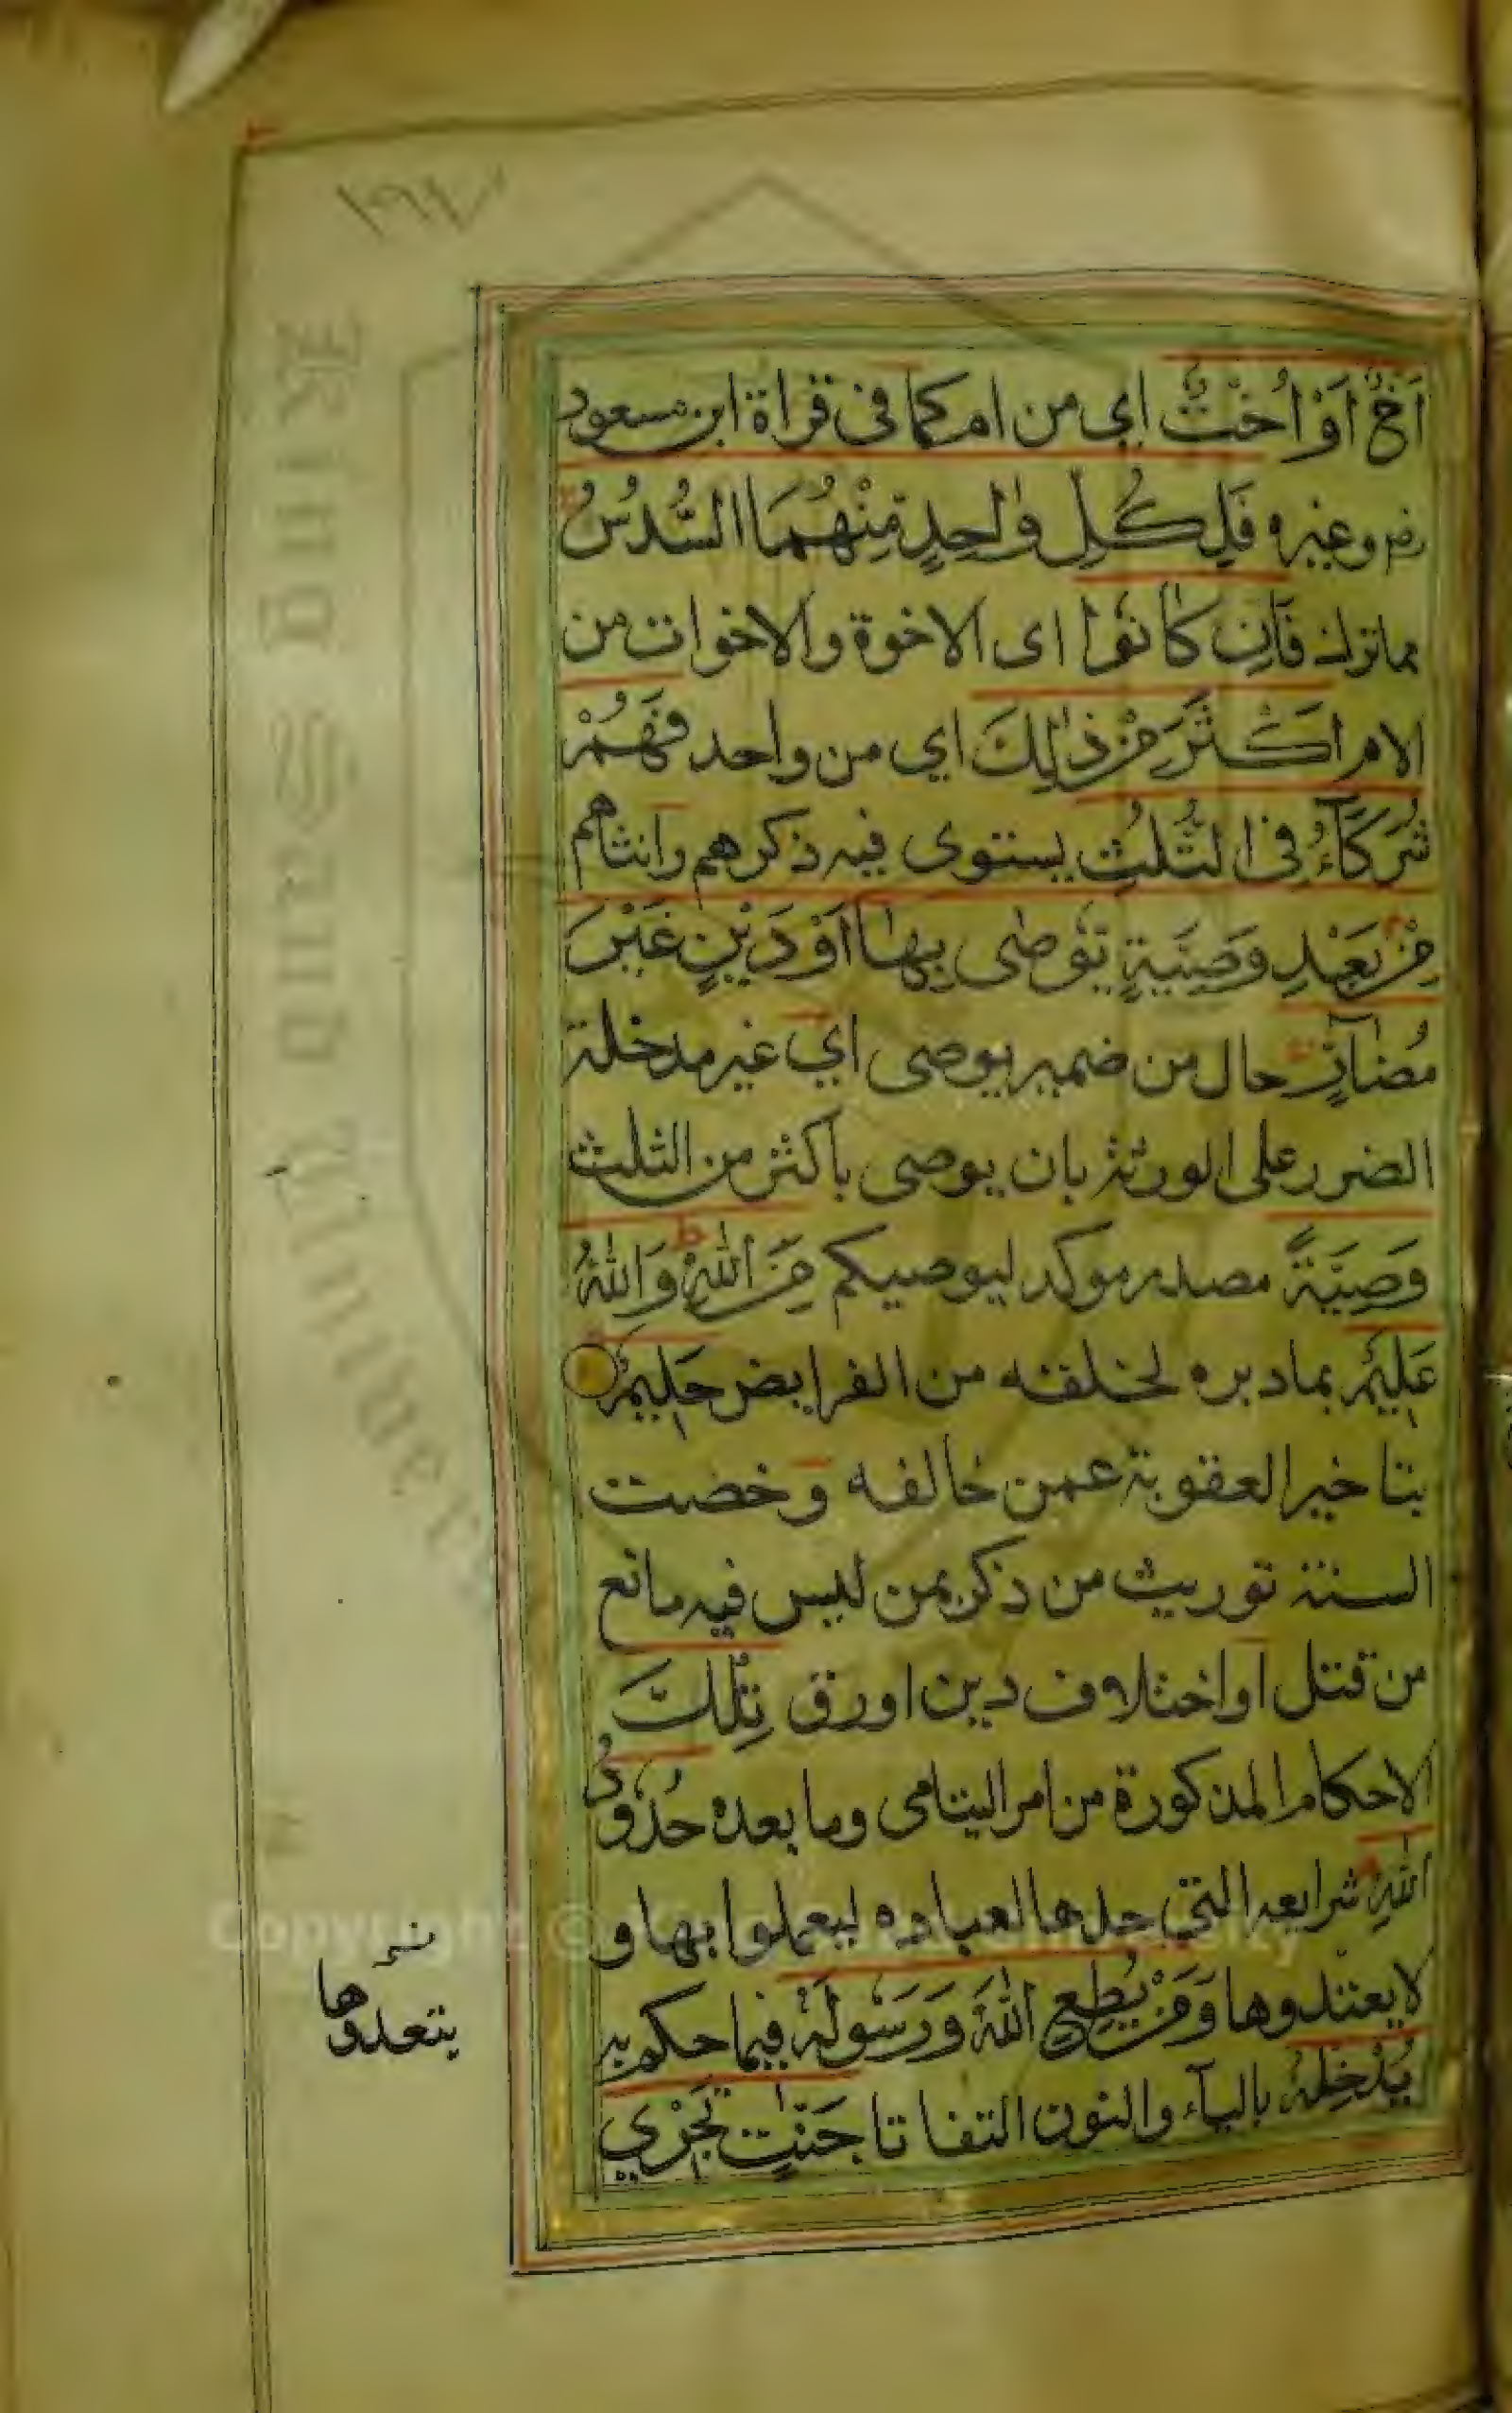 ١٩٧
أَخٌ أَوْ أُخْتٌ اي من ام كما فى قراة ابن مسعود
رض وغيره فَلِكُلِّ وٰاحِدٍ مِنْهُمَا السُّدُسُ
مماترك فَاِن كَانُوا اى الاخوة والاخوات من
الام اَكْثَرَ مِنْ ذٰلِكَ اي من واحد فَهُمْ
شُرَكَآءُ فِى الثُّلُثِ يستوى فيه ذكرهم وانثاهم
مِنْ بَعْدِ وَصِيَّةٍ يُوصٰى بِهَا اَوْ دَيْنٍ غَيْرَ
مُضَآرٍّ حال من ضمير يوصى اي غير مدخلة
الضرر على الورثة بان يوصى باكثر من الثلث
وَصِيَّةً مصدر موكد ليوصيكم مِنَ اللّٰهِ وَاللّٰهُ
عَلِيْمٌ بما دبره لخلقه من الفرايض حَلِيْمٌ
بتاخير العقوبة عمن خالفه وخصت
السنة توريث من ذكر بمن ليس فيه مانع
من قتل او اختلاف دين او رق تِلْكَ
الاحكام المذكورة من امر اليتامى وما بعده حُدُودُ
اللّٰهِ شرايعه التي حدها لعباده ليعملوا بها و
لا يعتدوها وَمَنْ يُطِعِ اللّٰهَ وَرَسُولَهٗ فيما حكم به
يُدْخِلْهُ باليآء والنون التفاتا جَنّٰتٍ تَجْرِي
يتعدوها
Copyright © King Saud University